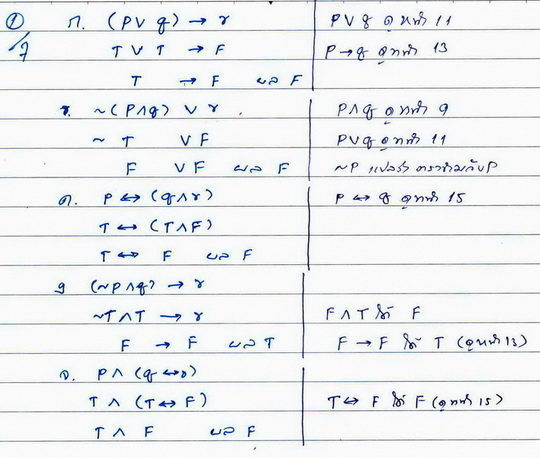 ① ก. (P ∨ q) → r P∨q ดูหน้า 11
T ∨ T → F P→q ดูหน้า 13
T → F ผล F
ข. ~(P∧q) ∨ r P∧q ดูหน้า 9
~ T ∨ F P∨q ดูหน้า 11
F ∨ F ผล F ~P แปลว่า ตรงข้ามกับP
ค. P ↔ (q∧r) P ↔ q ดูหน้า 15
T ↔ (T∧F)
T ↔ F ผล F
ง (~P∧q) → r
~T∧T → r F∧T ได้ F
F → F ผล T F → F ได้ T (ดูหน้า 13)
จ. P∧ (q↔r)
T ∧ (T↔F) T↔ F ได้ F (ดูหน้า 15)
T ∧ F ผล F